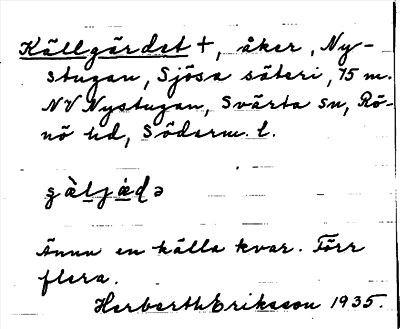 Källgärdet +, åker, Ny-
stugan, Sjösa säteri, 75 m.
NV Nystugan, Svärta sn, Rö-
nö hd, Söderm. l.
Ännu en källa kvar. Förr
flera.
Herbert Eriksson 1935.